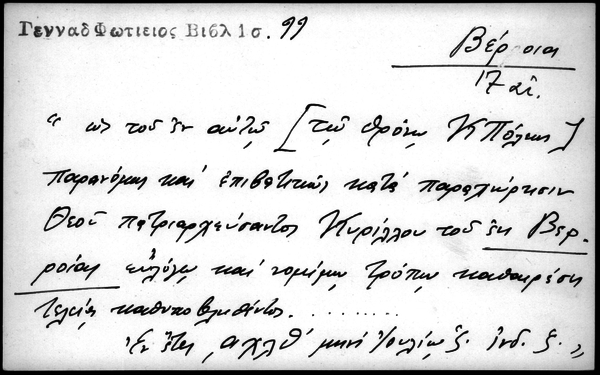 Γενναδ Φωτιειος Βιβλ 1 σ. 99
Βέρροια
17 αἰ.
“ ὡς τοῦ ἐν αὐτῷ [τῷ θρόνῳ ΚΠόλεως]
παρανόμως καὶ ἐπιβατικῶς κατὰ παραχώρησιν
Θεοῦ πατριαρχεύσαντος Κυρίλλου τοῦ ἐκ Βερ-
ροίας εὐλόγῳ καὶ νομίμῳ τρόπῳ καθαιρέσει
τελείᾳ καθυποβληθέντος. ........
Ἐν ἔτει ͵αχλθʹ μηνὶ Ἰουλίῳ ἰνδ. ζ. „